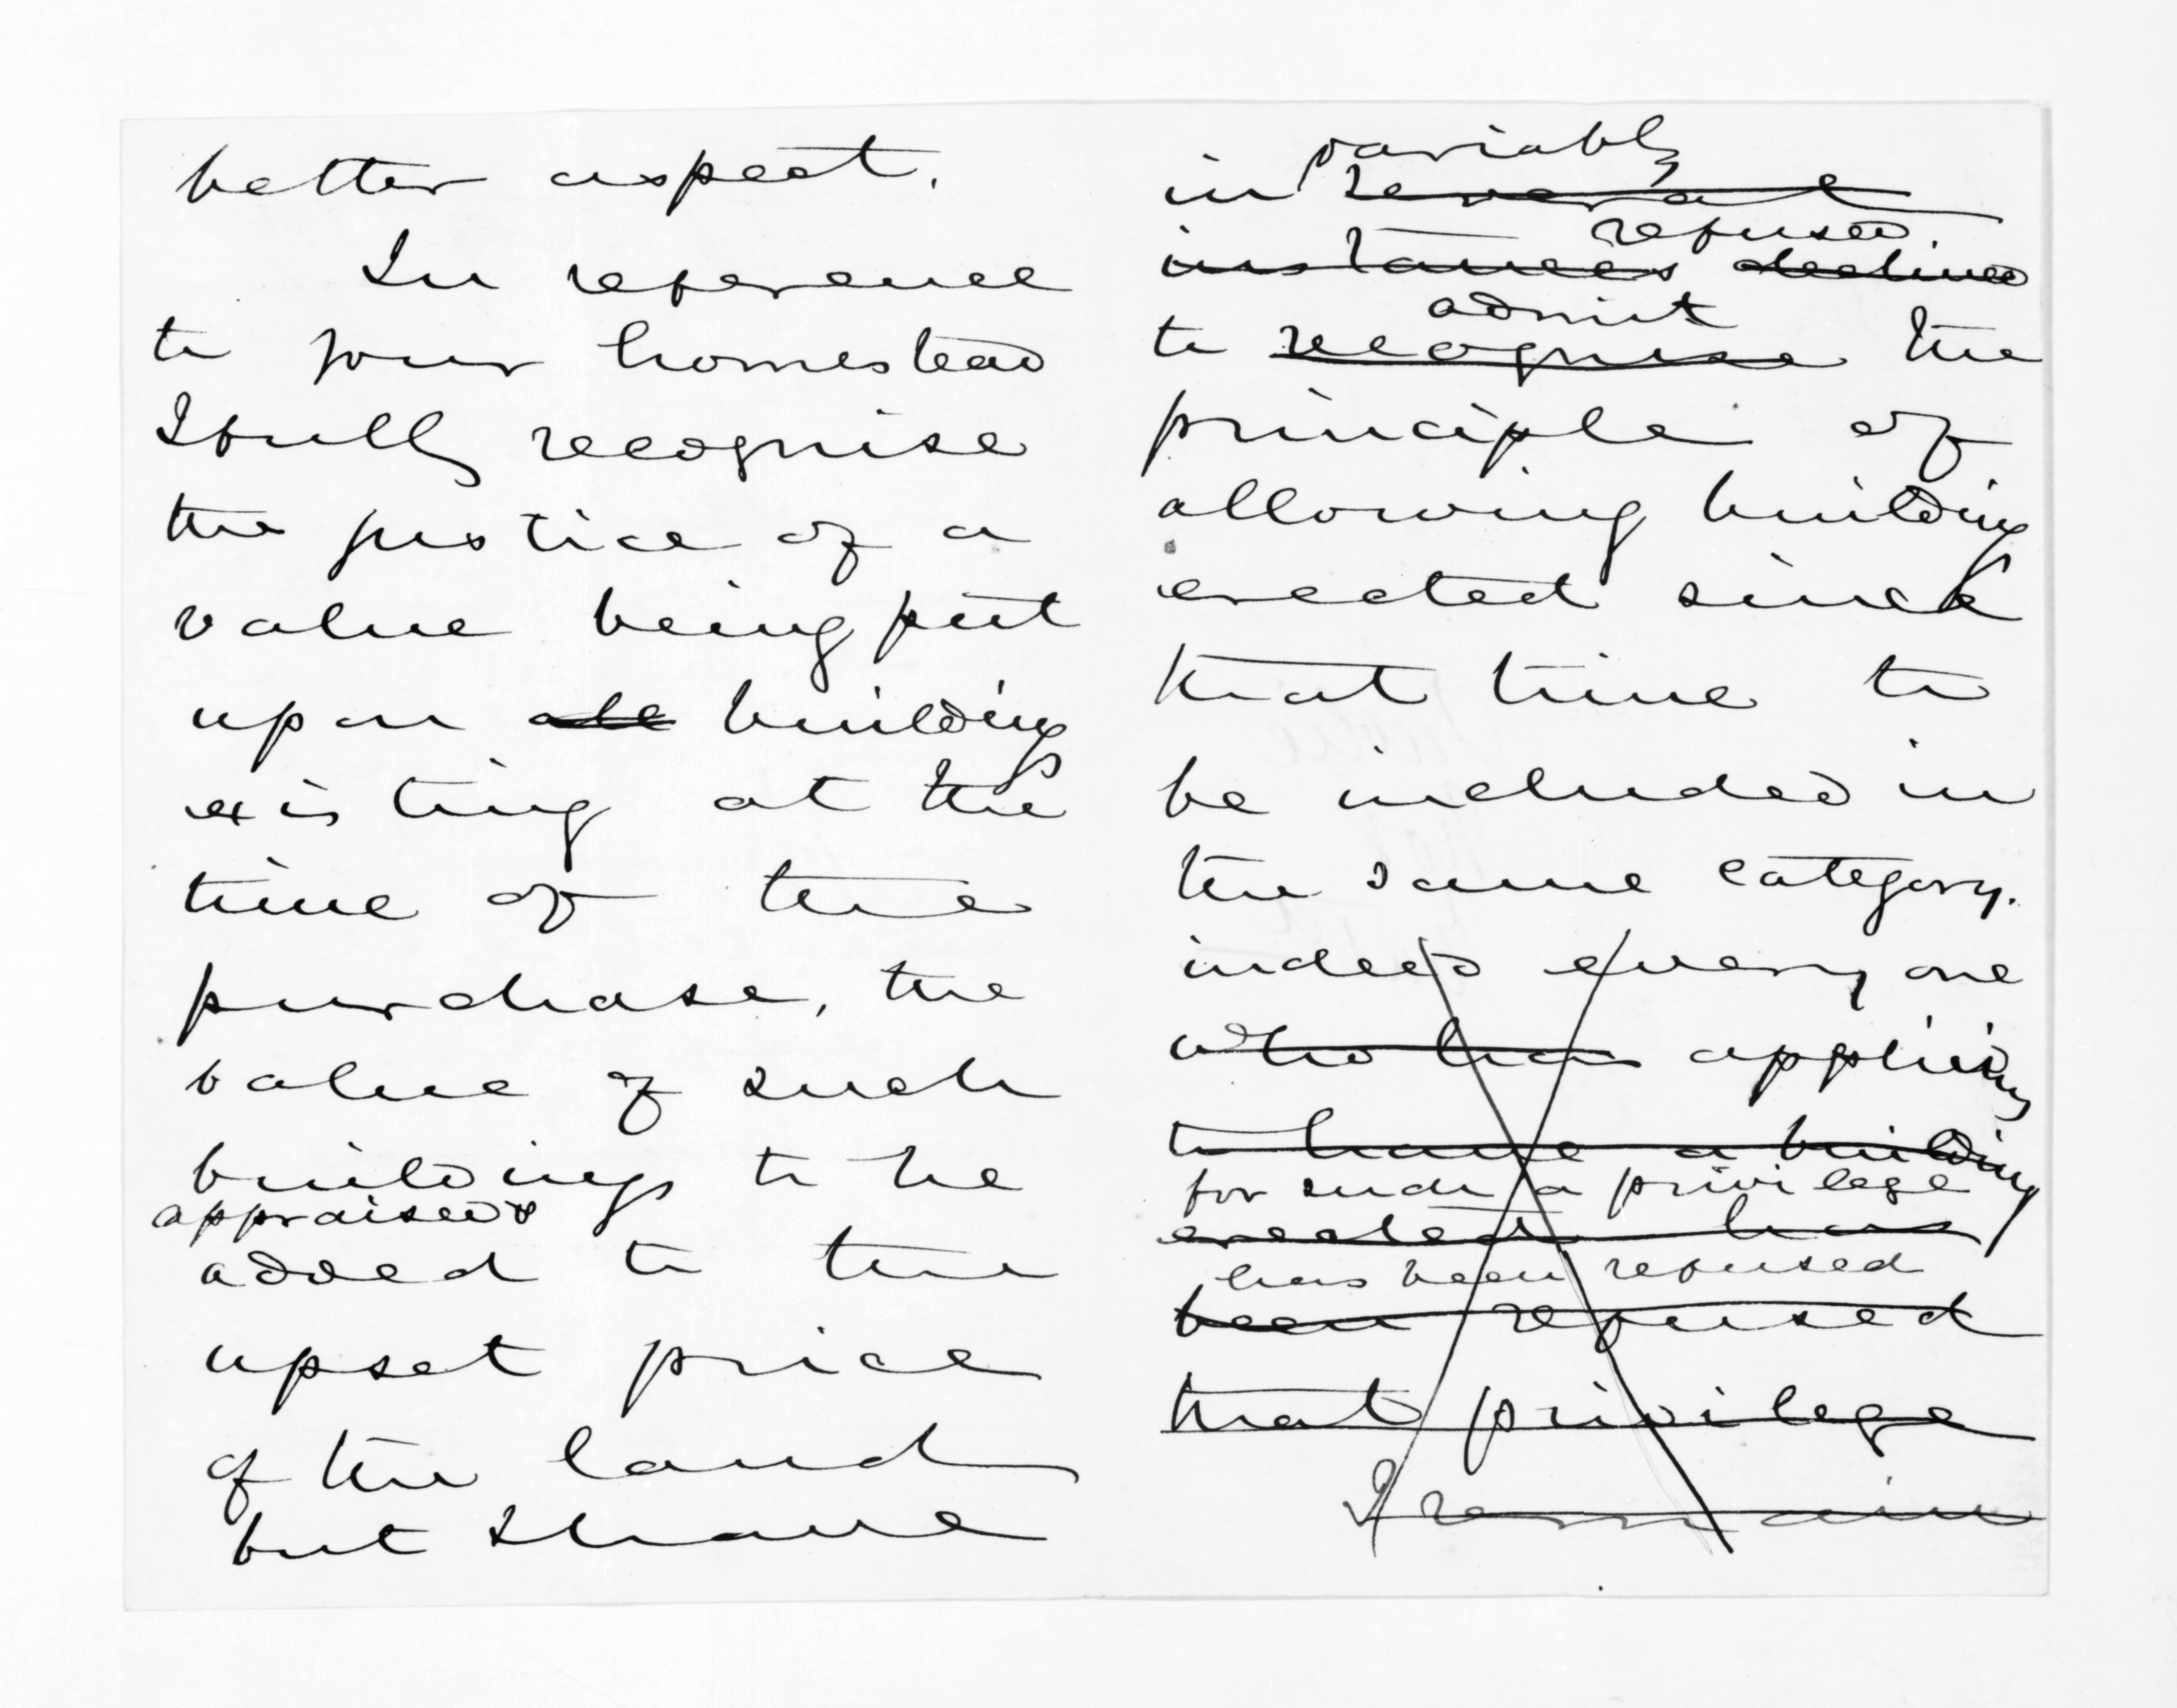 better aspect.
In reference
to your homestead
I fully recognise
the justice of a
value being put
upon all buildings
existing at the
time of the
purchase, the
value of such
buildings to be
appraised &
added to the
upset price
of the land
but I have
variably
in several
refused.
instances declined
admit
to recognise the
principle of
allowing buildings
erected since
that time to
be included in
the same category.
indeed every one
who has applying
to have a building
for such a privilege
erected has
has been refused
been refused
that privilege
I remain